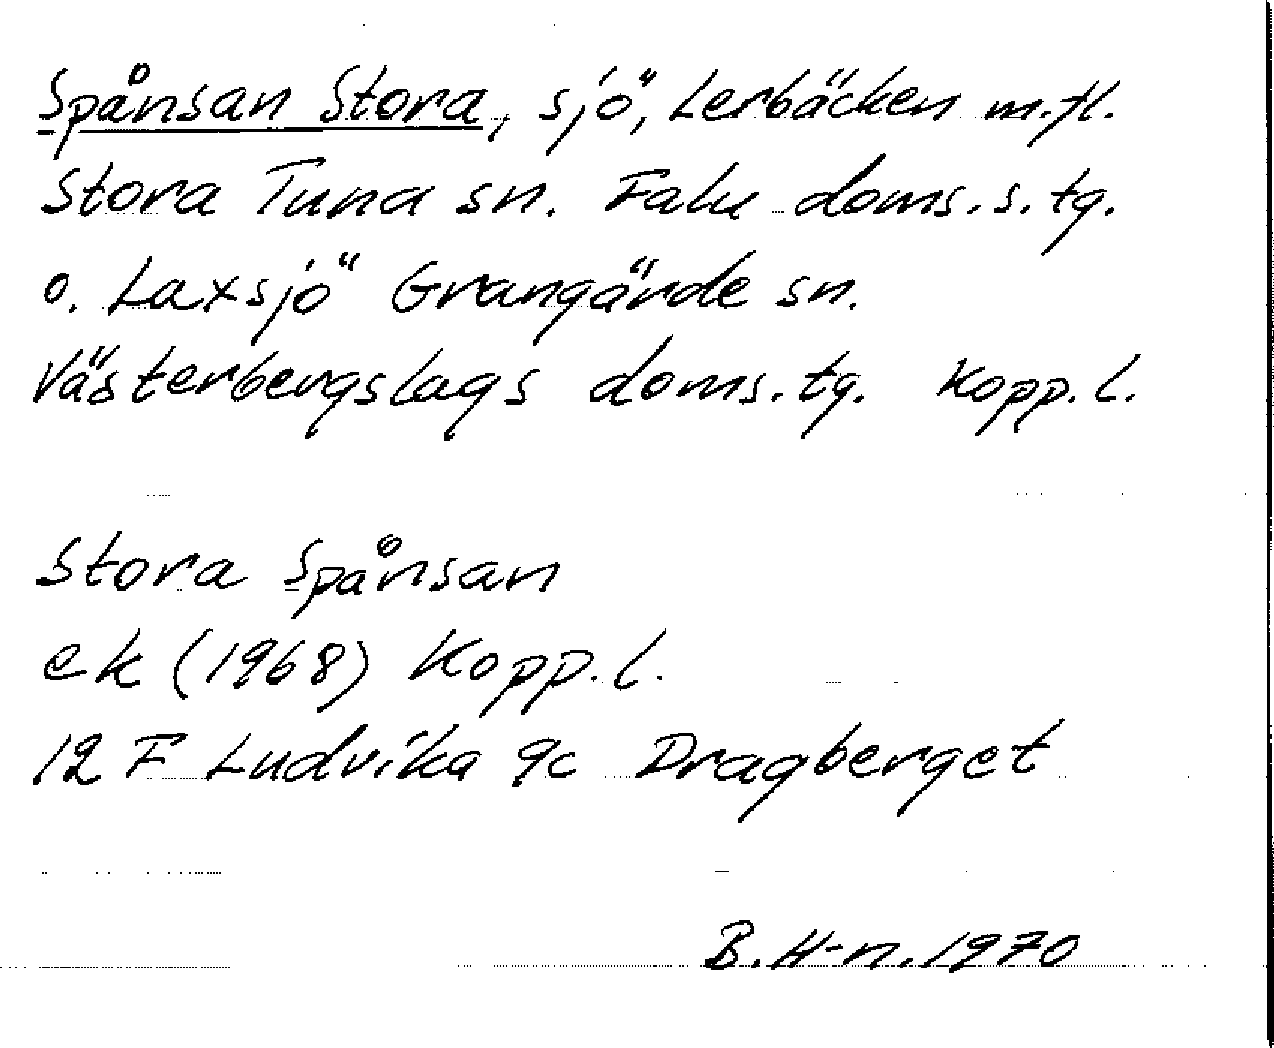 Spånsan Stora, sjö, Lerbäcken m.fl.
Stora Tuna sn. Falu doms.s.tg.
o. Laxsjö Grangärde sn.
Västerbergslags doms.tg. Kopp.l.
Stora Spånsan
ek (1968) Kopp.l.
12 F Ludvika 9c Dragberget
B.H-n.1970